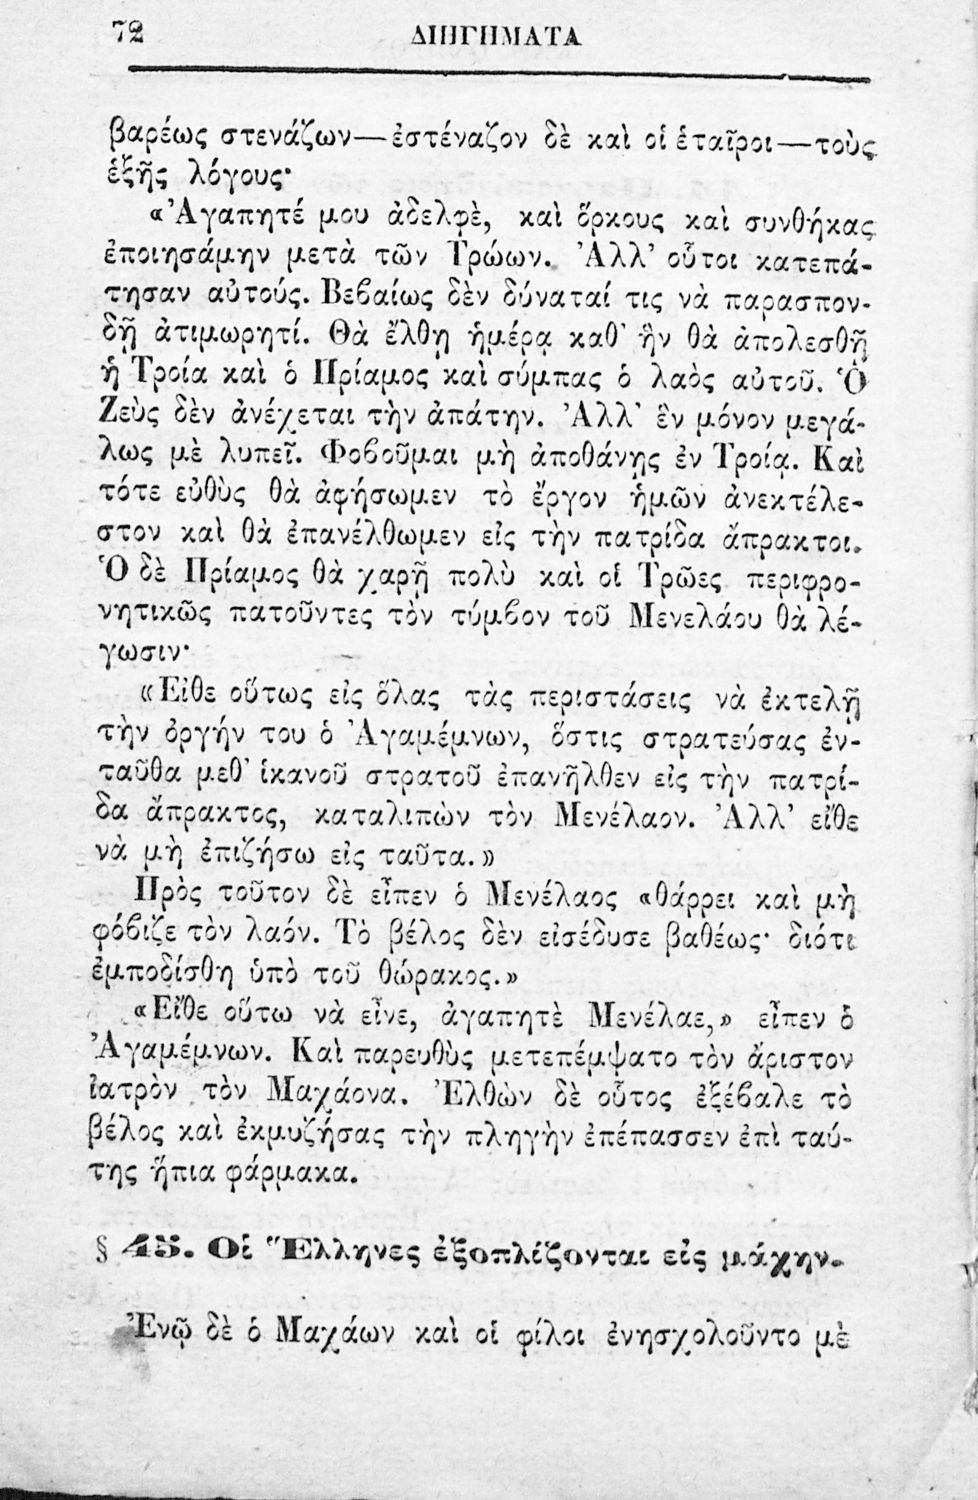 72 ΔΙΗΓΗΜΑΤΑ
βαρέως στενάζων—ἐστέναζον δὲ καὶ οἱ ἑταῖροι—τοὺς
ἑξῆς λόγους·
«Ἀγαπητέ μου ἀδελφὲ, καὶ ὅρκους καὶ συνθήκας
ἐποιησάμην μετὰ τῶν Τρώων. Ἀλλ’ οὗτοι κατεπά-
τησαν αὐτούς. Βεβαίως δὲν δύναταί τις νὰ παρασπον-
δῇ ἀτιμωρητί. Θὰ ἔλθῃ ἡμέρᾳ καθ’ ἣν θὰ ἀπολεσθῇ
ἡ Τροία καὶ ὁ Πρίαμος καὶ σύμπας ὁ λαὸς αὐτοῦ. Ὁ
Ζεὺς δὲν ἀνέχεται τὴν ἀπάτην. Ἀλλ’ ἓν μόνον μεγά-
λως μὲ λυπεῖ. Φοβοῦμαι μὴ ἀποθάνῃς ἐν Τροίᾳ. Καὶ
τότε εὐθὺς θὰ ἀφήσωμεν τὸ ἔργον ἡμῶν ἀνεκτέλε-
στον καὶ θὰ ἐπανέλθωμεν εἰς τὴν πατρίδα ἄπρακτοι.
Ὁ δὲ Πρίαμος θὰ χαρῇ πολὺ καὶ οἱ Τρῶες περιφρο-
νητικῶς πατοῦντες τὸν τύμβον τοῦ Μενελάου θὰ λέ-
γωσιν·
«Εἴθε οὕτως εἰς ὅλας τὰς περιστάσεις νὰ ἐκτελῇ
τὴν ὀργήν του ὁ Ἀγαμέμνων, ὅστις στρατεύσας ἐν-
ταῦθα μεθ’ ἱκανοῦ στρατοῦ ἐπανῆλθεν εἰς τὴν πατρί-
δα ἄπρακτος, καταλιπὼν τὸν Μενέλαον. Ἀλλ’ εἴθε
νὰ μὴ ἐπιζήσω εἰς ταῦτα.»
Πρὸς τοῦτον δὲ εἶπεν ὁ Μενέλαος «θάρρει καὶ μὴ
φόβιζε τὸν λαόν. Τὸ βέλος δὲν εἰσέδυσε βαθέως· διότι
ἐμποδίσθη ὑπὸ τοῦ θώρακος.»
«Εἴθε οὕτω νὰ εἶνε, ἀγαπητὲ Μενέλαε,» εἶπεν ὁ
Ἀγαμέμνων. Καὶ παρευθὺς μετεπέμψατο τὸν ἄριστον
ἰατρὸν τὸν Μαχάονα. Ἐλθὼν δὲ οὗτος ἐξέβαλε τὸ
βέλος καὶ ἐκμυζήσας τὴν πληγὴν ἐπέπασσεν ἐπὶ ταύ-
της ἤπια φάρμακα.
§ 45. Οἱ Ἕλληνες ἐξοπλίζονται εἰς μάχην.
Ἐνῷ δὲ ὁ Μαχάων καὶ οἱ φίλοι ἐνησχολοῦντο μὲ